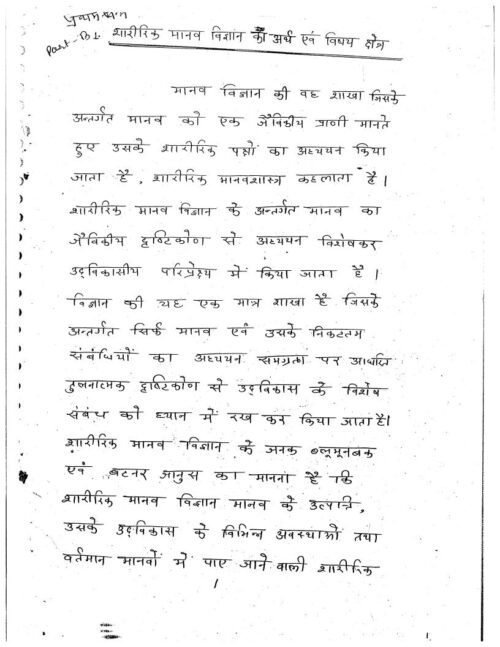 Part-B1. शारीरिक मानव विज्ञान का अर्थ एवं विषय क्षेत्र
मानव विज्ञान की वह शाखा जिसके
अन्तर्गत मानव को एक जैविकीय प्राणी मानते
हुए उसके शारीरिक पक्षों का अध्ययन किया
जाता है, शारीरिक मानवशास्त्र कहलाता है।
शारीरिक मानव विज्ञान के अन्तर्गत मानव का
जैविकीय दृष्टिकोण से अध्ययन विशेषकर
उद्विकासीय परिप्रेक्ष्य में किया जाता है।
विज्ञान की यह एक मात्र शाखा है जिसके
अन्तर्गत सिर्फ मानव एवं उसके निकटतम
संबंधियों का अध्ययन समग्रता पर आधारित
तुलनात्मक दृष्टिकोण से उद्विकास के विशेष
संबंध को ध्यान में रख कर किया जाता है।
शारीरिक मानव विज्ञान के जनक ब्लूमूनबक
एवं बटनर जानुस का मानना है कि
शारीरिक मानव विज्ञान मानव के उत्पत्ति,
उसके उद्विकास के विभिन्न अवस्थाओं तथा
वर्तमान मानवों में पाए जाने वाली शारीरिक
1